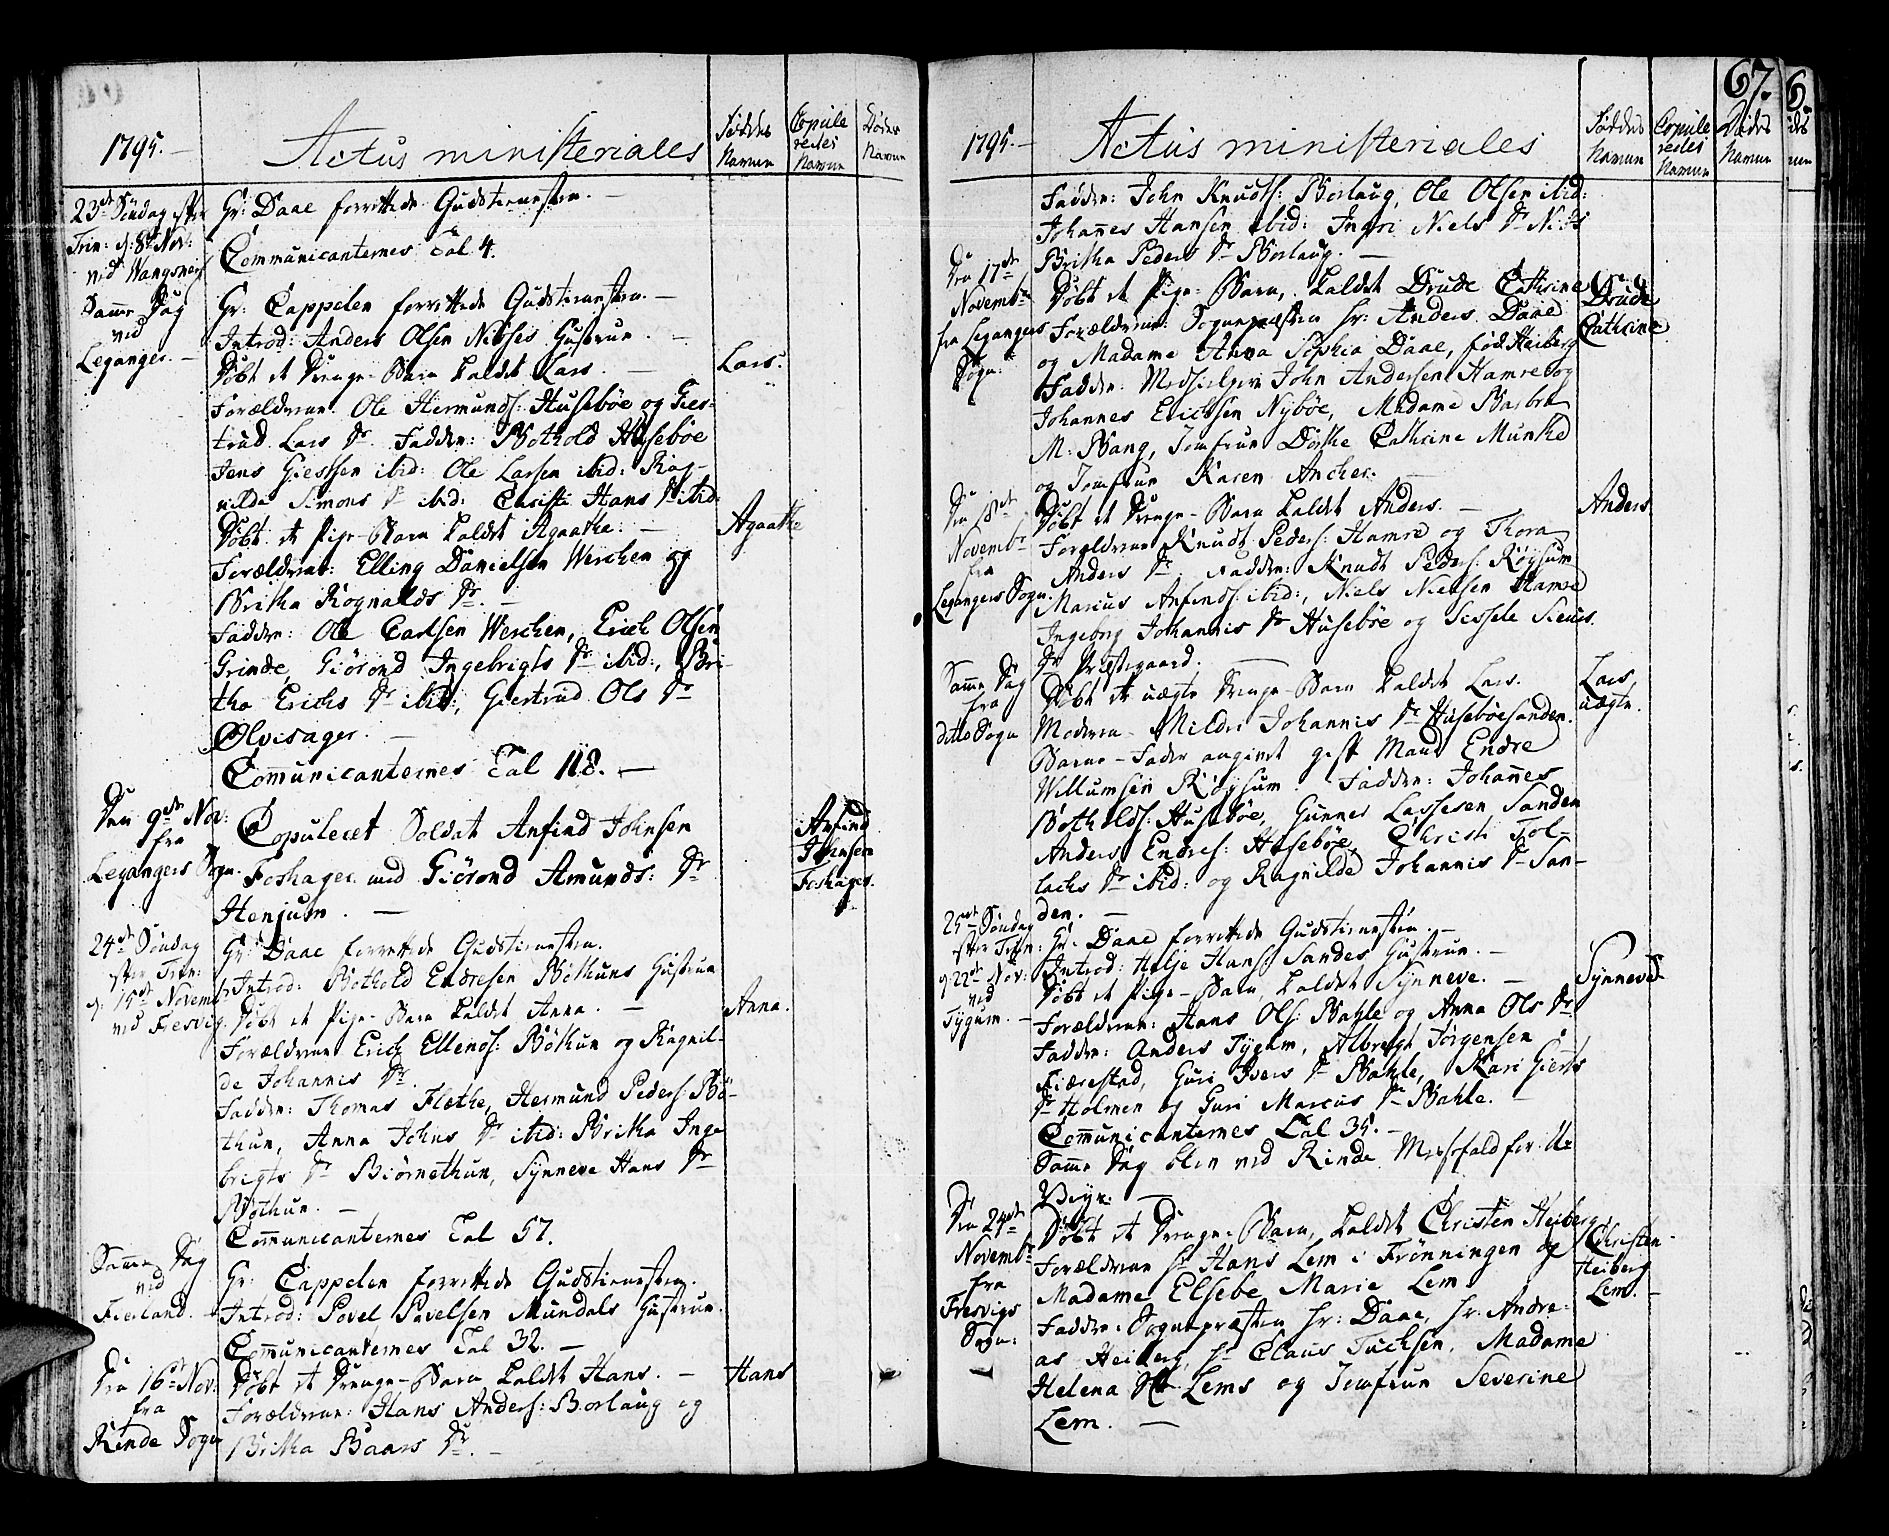 1795.
Actus ministeriales
Føddes Navne
Copule redes Navne
Dødes Navne
23de Søndag efter
Trin: d: 8de Nov:
ved Wangsnes
Hr: Daae forrettede Gudstienesten.
Communicanternes Tal 4.
Samme Dag
ved
Leganger.
Hr: Cappelen forrettede Gudstienesten.
Introd: Anders Olsen Hustrue.
Døbt et Drenge-Barn kaldet Lars.
Lars.
Forældrene: Ole Hermunds: Husebøe og Gier-
trud Lars Dr Fadder: Bothold Husebøe
Jens Giessen ibid: Ole Larsen ibid: Rag-
nilda Simons Dr ibid: Christi Hans Dr ibid:
Døbt et Pige-Barn kaldet Agaathe.
Agaathe
Forældrene: Elling Danielsen Werchen og
Britha Rognalds Dr.
Fadder: Ole Carlsen Werchen, Erich Olsen
Grinde, Giørond Ingebrigts Dr ibid:, Bri-
tha Erichs Dr ibid:, Giertrud Ols Dr
Ølvisager.
Com̄unicanternes Tal 118.
Den 9de Nov:
fra
Legangers Sogn.
Copuleret Soldat Anfind Johnsen
Foshager med Giörond Amunds: Dr
Henjum.
Anfind
Johnsen
Foshager.
24de Søndag
efter Trin:
d: 15de Novembr
ved Fresvig.
Hr: Daae forrettede Gudstienesten.
Introd: Bothold Endresen Bøthuns Hustrue
Døbt et Pige-Barn kaldet Anna.
Anna.
Forældrene Erich Ellends: Bøthun og Ragnil-
de Johannis Dr.
Fadder: Thomas Flæthe, Hermund Peders: Bø-
thun, Anna Johns Dr ibid: Britha Inge
brigts Dr Biørnethun, Synneve Hans Dr
Bøthun.
Com̄unicanternes Tal 57.
Sam̄e Dag
ved
Fierland.
Hr: Cappelen forrettede Gudstienesten.
Introd: Povel Povelsen Mundals Hustrue.
Com̄unicanternes Tal 32.
Den 16de Nov:
fra
Rinde Sogn
Døbt et Drenge-Barn kaldet Hans.
Hans
Forældrene: Hans Anders: Borlaug og
Britha Baars Dr.
67.
1795.
Actus ministeriales
Føddes Navne
Copule redes Navne
Dødes Navne
Fadder: John Knuds: Borlaug, Ole Olsen ibid:
Johan̄es Hansen ibid: Ingri Niels Dr
Britha Peders Dr Borlaug.
Den 17de
Novembr
fra Legangers
Sogn:
Døbt et Pige-Barn, kaldet Drude Cathrine
Drude
Cathrine
Forældrene: Sognepræsten Hr: Anders Daae
og Madame Anna Sophia Daae, fød Heiberg
Fadder: John Andersen Hamre og
Johannes Erichsen Nybøe, Madame Barbra
M. Bang, Jomfrue Dorthe Cathrine Munthe
og Jomfrue Karen Ancher.
Den 18de
Novembr
fra
Legangers Sogn.
Døbt et Drenge-Barn kaldet Anders.
Anders
Forældrene Knudt Peders: Hamre og Thora
Anders Dr. Fadder: Knudt Peders: Røysum
Marius Anfinds: ibid:, Niels Nielsen Hamre
Ingeborg Johannis Dr Husebøe og Sissele Siurs.
Dr Præstegaard.
Sam̄e Dag
fra
ditto Sogn
Døbt et uægte Drenge-Barn kaldet Lars.
Lars,
uægte.
Moderen Mildri Johannis Dr Husebøesanden.
Barne-Fader angivet gift Mand Endre
Willumsen Røysum. Fadder: Johan̄es
Botholds: Husebøe, Gunner Lassesen Sanden
Anders Endres: Husebøe, Christi Tol-
lachs Dr ibid: og Ragnilde Johannis Dr San-
den.
25de Søndag
efter Trin:
d: 22de Nov:
ved
Tygum.
Hr: Daae forrettede Gudstienesten.
Introd: Helje Hans: Sandes Hustrue.
Døbt et Pige-Barn kaldet Synneve.
Synneve
Forældrene: Hans Ols: Bahle og Anna Ols Dr
Fadder: Anders Tygum, Albregt Jørgensen
Fiærestad, Guri Ivers Dr Bahle, Kari Gierts
Dr Holmen og Guri Marcus Dr Bahle.
Com̄unicanternes Tal 35.
Sam̄e Dag blev ved Rinde Messefald for
Veyr.
Den 24de
Novembr
fra
Fresvigs
Sogn:
Døbt et Drenge-Barn, kaldet Christen Heiberg
Christen
Heiberg
Lem.
Forældrene Hr Hans Lem i Frønningen og
Madame Elsebe Marie Lem
Fadder: Sognepræsten Hr: Daae, Hr: Andre-
as Heiberg, Hr Claus Tuchsen, Madame
Helena Lems og Jomfrue Severine
Lem.